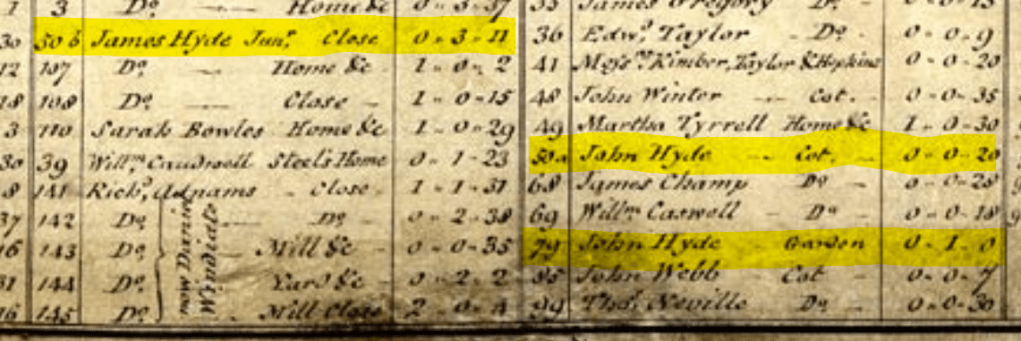 1 3 Do. — Home &c 0 - 3 - 37
30 50 b James Hyde Junr. Close 0 - 3 - 11
12 107 Do. — Home &c 1 - 0 - 2
18 108 Do. — Close - 1 - 0 - 15
3 110 Sarah Bowles Home &c 1 - 0 - 29
30 39 Willm. Caudwell Steel's Home 0 - 1 - 23
8 141 Richd. Adnams - Close - 1 - 1 - 31
37 142 Do. - Do. - 0 - 2 - 38
16 143 Do. - Mill &c - 0 - 0 - 35
31 144 Do. Yard &c - 0 - 2 - 2
16 145 Do. Mill Close 2 - 0 - 4
now Daniel
35 James Gregory Do. - 0 - 0 - 13
36 Edwd. Taylor - Do. - 0 - 0 - 9
41 Messrs. Kimber, Taylor & Hopkins 0 - 0 - 20
48 John Winter — Cot. - 0 - 0 - 35
49 Martha Tyrrell Home &c 1 - 0 - 30
50a John Hyde — Cot. - 0 - 0 - 20
68 James Champ Do. - 0 - 0 - 28
69 Willm. Caswell - Do. - 0 - 0 - 18
79 John Hyde Garden 0 - 1 - 0
85 John Webb Cot - 0 - 0 - 7
99 Thos. Neville Do. - 0 - 0 - 30